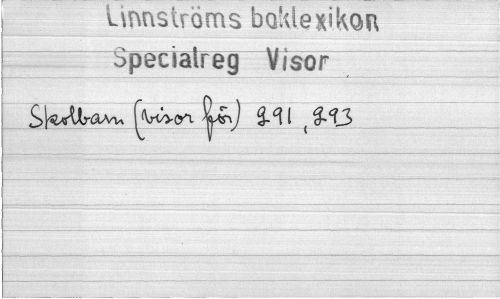 Linnströms boklexikon
Specialreg Visor
Skolbarn (visor för) 991, 993